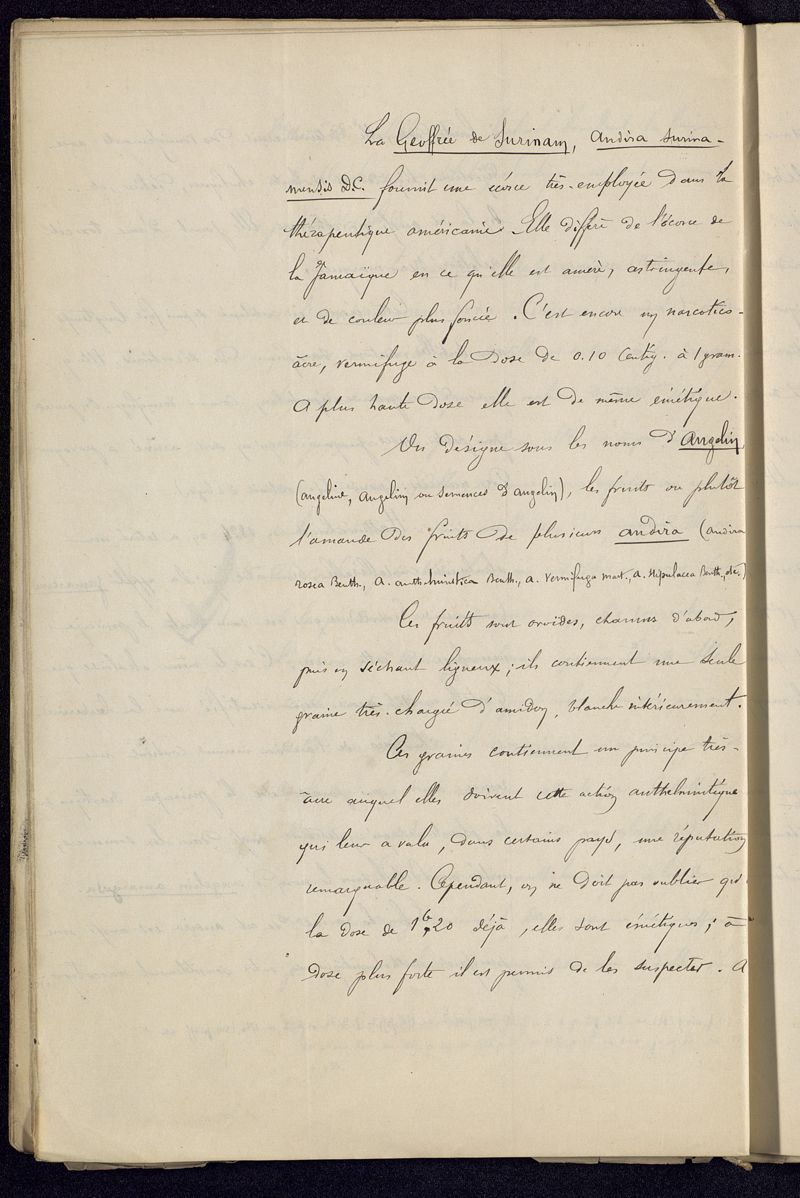 La Geoffrée de Surinam, Andira surina-
mensis D.C. fournit une écorce très-employée dans la
thérapeutique américaine. Elle diffère de l'écorce de
la Jamaïque en ce qu'elle est amère, astringente,
et de couleur plus foncée. C'est encore un narcotico-
âcre, vermifuge à la dose de 0.10 Centig. à 1 gram.
A plus haute dose elle est de même émétique.
On désigne sous les noms d'Angelin
(angeline, angelin ou semences d'angelin), les fruits ou plutôt
l'amande des fruits de plusieurs andira (andira
rosea Benth., A. anthelmintica Benth., A. vermifuga Mart., A. stipulacea Benth., etc.)
Ces fruits sont ovoïdes, charnus d'abord,
puis en séchant ligneux ; ils contiennent une seule
graine très-chargée d'amidon, blanche intérieurement.
Ces graines contiennent un principe très-
âcre auquel elles doivent cette action anthelmintique
qui leur a valu, dans certains pays, une réputation
remarquable. Cependant, on ne doit pas oublier qu'à
la dose de 1g,20 déjà, elles sont émétiques ; à
dose plus forte il est permis de les suspecter. A